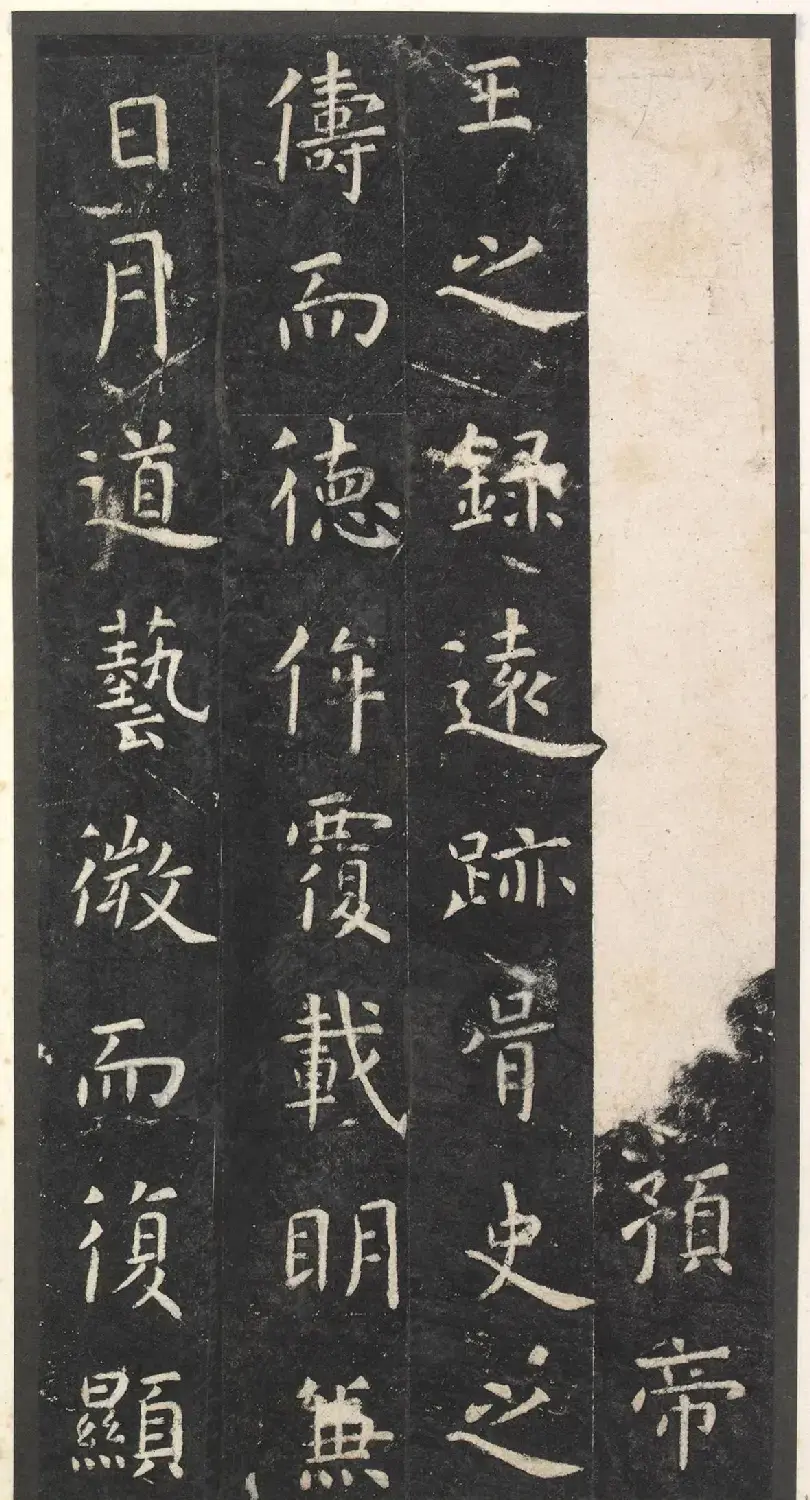 預帝
王之錄遠跡胥史之
儔而德侔覆載明兼
日月道藝微而復顯